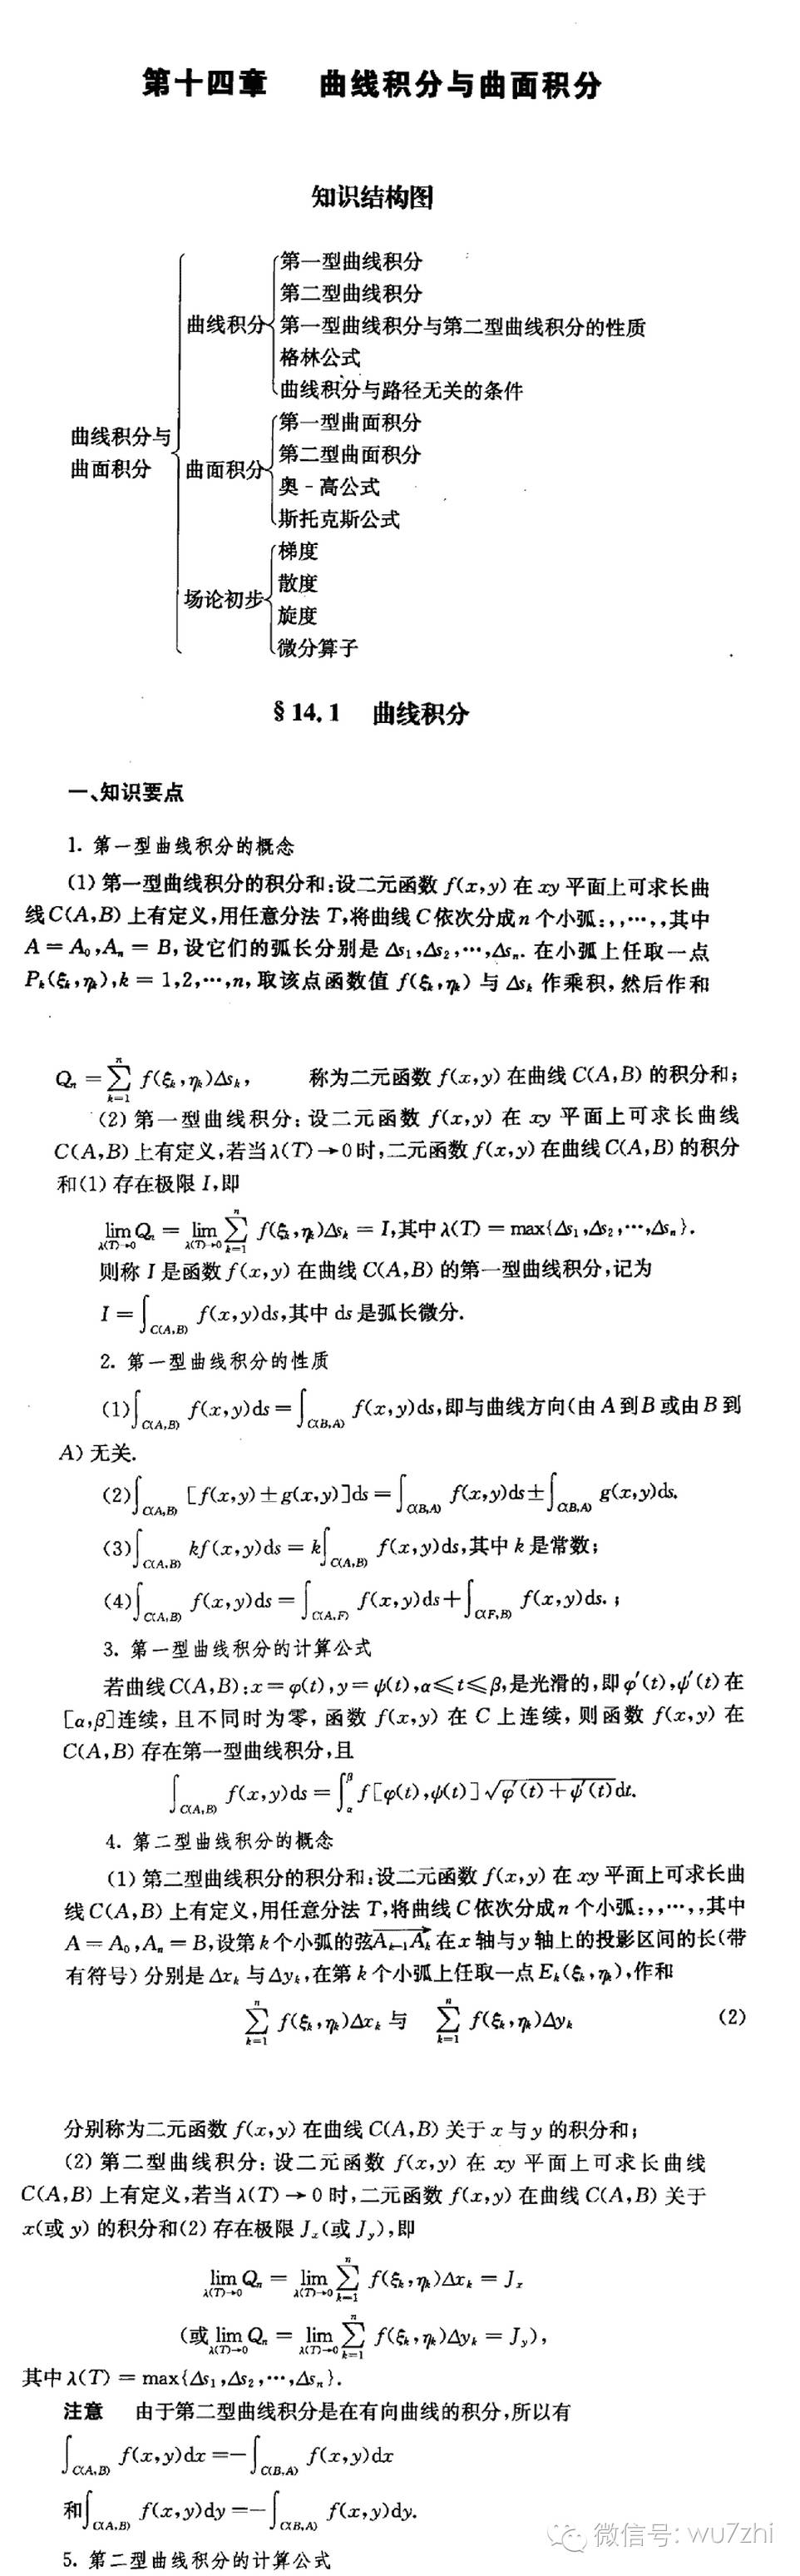 第十四章 曲线积分与曲面积分
知识结构图
曲线积分与曲面积分
曲线积分
第一型曲线积分
第二型曲线积分
第一型曲线积分与第二型曲线积分的性质
格林公式
曲线积分与路径无关的条件
曲面积分
第一型曲面积分
第二型曲面积分
奥-高公式
斯托克斯公式
场论初步
梯度
散度
旋度
微分算子
§14.1 曲线积分
一、知识要点
1. 第一型曲线积分的概念
(1) 第一型曲线积分的积分和:设二元函数 f(x,y) 在 xy 平面上可求长曲
线C(A,B) 上有定义,用任意分法 T,将曲线 C 依次分成 n 个小弧:,,…,,其中
A = A₀,Aₙ = B, 设它们的弧长分别是 Δs₁,Δs₂,…,Δsₙ. 在小弧上任取一点
Pₖ(ξₖ,ηₖ),k = 1,2,…,n, 取该点函数值 f(ξₖ,ηₖ) 与 Δsₖ 作乘积, 然后作和
Qₙ = ∑_{k=1}^{n} f(ξₖ,ηₖ)Δsₖ, 称为二元函数 f(x,y) 在曲线 C(A,B) 的积分和;
(2) 第一型曲线积分: 设二元函数 f(x,y) 在 xy 平面上可求长曲线
C(A,B) 上有定义,若当 λ(T)→0 时,二元函数 f(x,y) 在曲线 C(A,B) 的积分
和(1) 存在极限 I,即
lim_{λ(T)→0} Qₙ = lim_{λ(T)→0} ∑_{k=1}^{n} f(ξₖ,ηₖ)Δsₖ = I,其中 λ(T) = max{Δs₁,Δs₂,…,Δsₙ}.
则称 I 是函数 f(x,y) 在曲线 C(A,B) 的第一型曲线积分,记为
I = ∫_{C(A,B)} f(x,y)ds,其中 ds 是弧长微分.
2. 第一型曲线积分的性质
(1)∫_{C(A,B)} f(x,y)ds = ∫_{C(B,A)} f(x,y)ds,即与曲线方向(由 A 到 B 或由 B 到
A) 无关.
(2)∫_{C(A,B)} [f(x,y)±g(x,y)]ds = ∫_{C(B,A)} f(x,y)ds±∫_{C(B,A)} g(x,y)ds.
(3)∫_{C(A,B)} kf(x,y)ds = k∫_{C(A,B)} f(x,y)ds,其中 k 是常数;
(4)∫_{C(A,B)} f(x,y)ds = ∫_{C(A,F)} f(x,y)ds+∫_{C(F,B)} f(x,y)ds. ;
3. 第一型曲线积分的计算公式
若曲线 C(A,B):x = φ(t),y = ψ(t),α≤t≤β,是光滑的,即 φ′(t),ψ′(t) 在
[α,β]连续, 且不同时为零, 函数 f(x,y) 在 C 上连续, 则函数 f(x,y) 在
C(A,B) 存在第一型曲线积分,且
∫_{C(A,B)} f(x,y)ds = ∫_α^β f[φ(t),ψ(t)]√(φ′(t)+ψ′(t))dt.
4. 第二型曲线积分的概念
(1) 第二型曲线积分的积分和:设二元函数 f(x,y) 在 xy 平面上可求长曲
线C(A,B) 上有定义,用任意分法 T,将曲线 C 依次分成 n 个小弧:,,…,,其中
A = A₀,Aₙ = B,设第 k 个小弧的弦\overrightarrow{A_{k-1}A_k} 在 x 轴与 y 轴上的投影区间的长(带
有符号) 分别是 Δxₖ 与 Δyₖ,在第 k 个小弧上任取一点 Eₖ(ξₖ,ηₖ),作和
∑_{k=1}^{n} f(ξₖ,ηₖ)Δxₖ 与 ∑_{k=1}^{n} f(ξₖ,ηₖ)Δyₖ (2)
分别称为二元函数 f(x,y) 在曲线 C(A,B) 关于 x 与 y 的积分和;
(2) 第二型曲线积分: 设二元函数 f(x,y) 在 xy 平面上可求长曲线
C(A,B) 上有定义,若当 λ(T)→0 时,二元函数 f(x,y) 在曲线 C(A,B) 关于
x(或 y) 的积分和(2) 存在极限 Jₓ(或 J_y),即
lim_{λ(T)→0} Qₙ = lim_{λ(T)→0} ∑_{k=1}^{n} f(ξₖ,ηₖ)Δxₖ = Jₓ
(或 lim_{λ(T)→0} Qₙ = lim_{λ(T)→0} ∑_{k=1}^{n} f(ξₖ,ηₖ)Δyₖ = J_y),
其中 λ(T) = max{Δs₁,Δs₂,…,Δsₙ}.
注意 由于第二型曲线积分是在有向曲线的积分,所以有
∫_{C(A,B)} f(x,y)dx =-∫_{C(B,A)} f(x,y)dx
和∫_{C(A,B)} f(x,y)dy =-∫_{C(B,A)} f(x,y)dy.
5. 第二型曲线积分的计算公式
微信号: wu7zhi